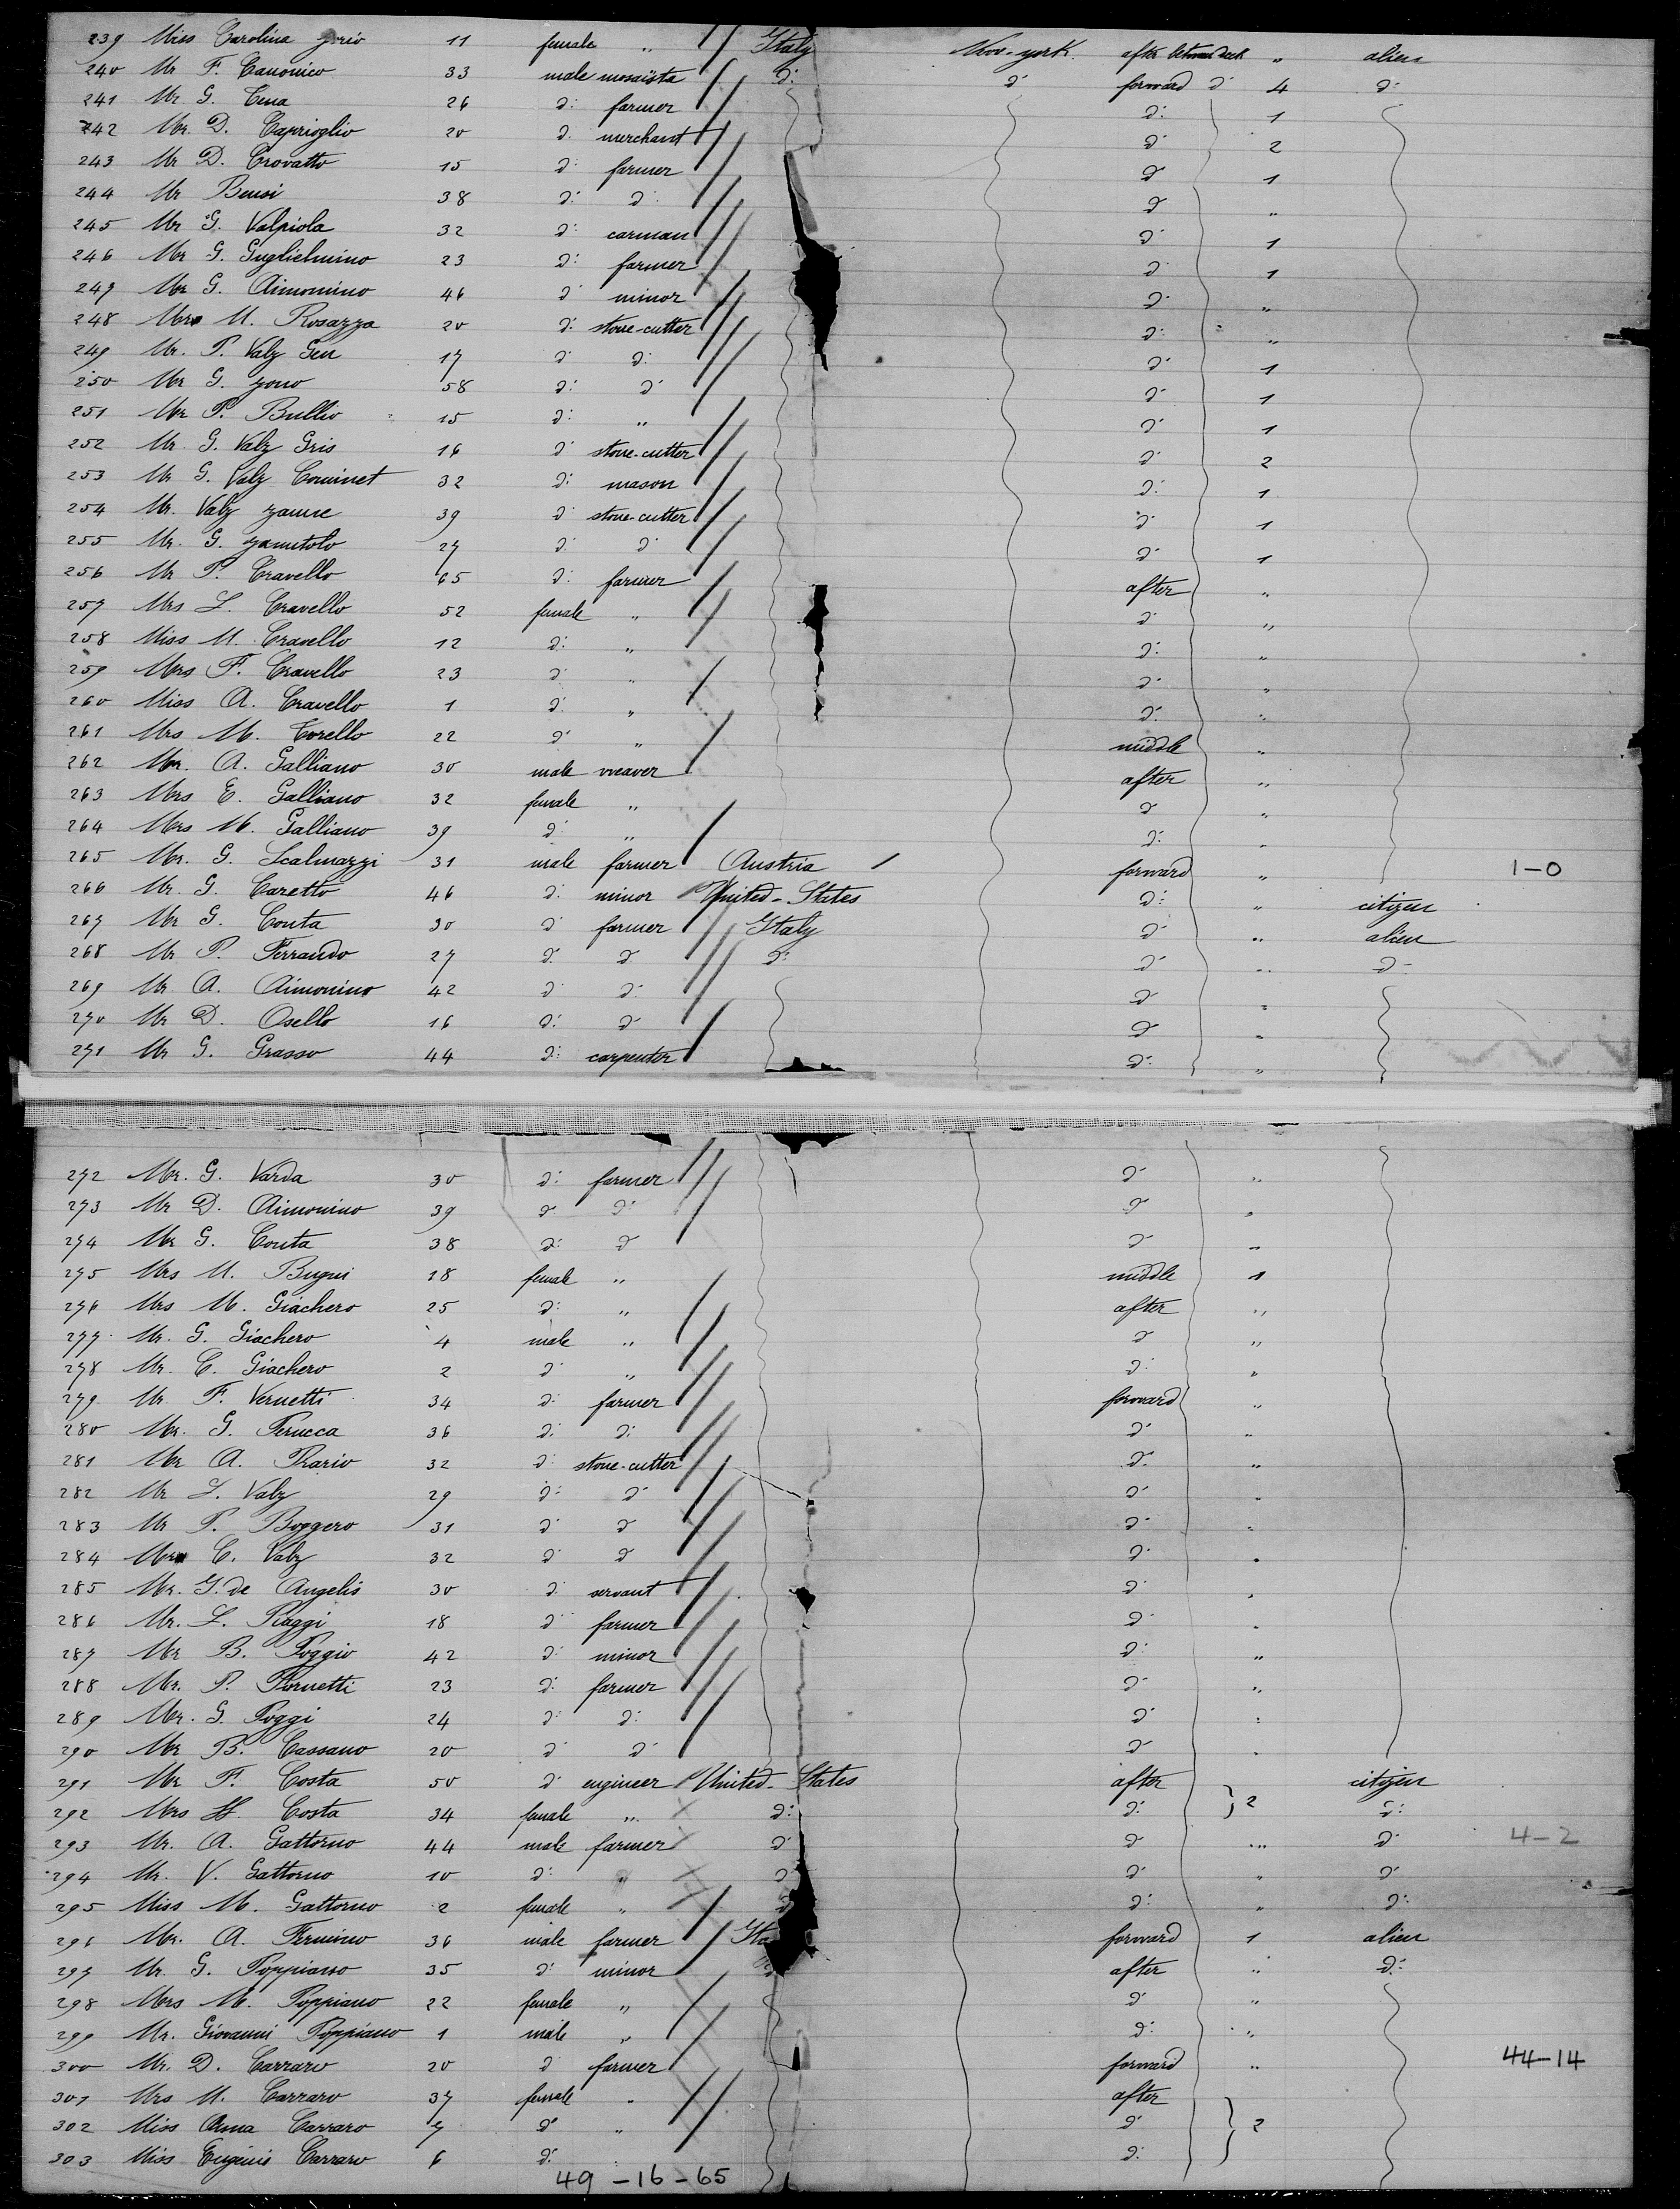 239 Miss Carolina Jorio 11 female „ Italy New-york. after between deck „ alien
240 Mr F. Canonico 33 male mosaïsta d: d: forward d: 4 d:
241 Mr. G. Cena 26 d: farmer d: 1
242 Mr. D. Caprioglio 20 d. merchant d: 2
243 Mr D. Crovatto 15 d: farmer d: 1
244 Mr Bensi 38 d: d: d: „
245 Mr G. Valpiola 32 d: carman d: 1
246 Mr G. Guglielmino 23 d: farmer d: 1
247 Mr G. Aimonino 46 d: minor d: „
248 Mr M. Rosazza 20 d: stone-cutter d: „
249 Mr. P. Valz Gen 17 d: d: d: 1
250 Mr G. yono 58 d: d: d: 1
251 Mr P. Bullio 15 d: „ d: 1
252 Mr. G. Valz Gris 16 d: stone-cutter d: 2
253 Mr G. Valz Cominet 32 d: mason d: 1
254 Mr. Valz 39 d: stone-cutter d: 1
255 Mr. G. 27 d: d: d: 1
256 Mr P. Cravello 65 d: farmer after „
257 Mrs L. Cravello 52 female „ d: „
258 Miss M. Cravello 12 d: „ d: „
259 Mrs F. Cravello 23 d: „ d: „
260 Miss A. Cravello 1 d: „ d: „
261 Mrs M. Corello 22 d: „ middle „
262 Mr. A. Galliano 30 male weaver after „
263 Mrs E. Galliano 32 female „ d: „
264 Mrs M. Galliano 39 d: „ d: „
265 Mr. G. Scalmazzi 31 male farmer Austria forward „ 1-0
266 Mr. G. Caretto 46 d: minor United-States d: „ citizen
267 Mr G. Conta 30 d: farmer Italy d: „ alien
268 Mr P. Ferrando 27 d: d: d: d: „ d:
269 Mr A. Aimonino 42 d: d: d: „
270 Mr D. Osello 16 d: d: d: „
271 Mr G. Grasso 44 d: carpenter d: „
272 Mr. G. Varda 30 d: farmer d: „
273 Mr D. Aimonino 39 d: d: d: „
274 Mr G. Conta 38 d: d: d: „
275 Mrs M. Bugni 18 female „ middle 1
276 Mrs M. Giachero 25 d: „ after „
277 Mr. G. Giachero 4 male „ d: „
278 Mr. C. Giachero 2 d: „ d: „
279 Mr F. Vernetti 34 d: farmer forward „
280 Mr. G. Perucca 36 d: d: d: „
281 Mr A. Prario 32 d: stone-cutter d: „
282 Mr L. Valz 29 d: d: d: „
283 Mr P. Boggero 31 d: d: d: „
284 Mr C. Valz 32 d: d: d: „
285 Mr. G. de Angelis 30 d: servant d: „
286 Mr. L. Piaggi 18 d: farmer d: „
287 Mr B. Poggio 42 d: minor d: „
288 Mr. P. Fornetti 23 d: farmer d: „
289 Mr. G. Poggi 24 d: d: d: „
290 Mr B. Cassano 20 d: d: d: „
291 Mr F. Costa 50 d: engineer United-States after citizen
292 Mrs H. Costa 34 female „ d: d: 2 d:
293 Mr. A. Gattorno 44 male farmer d: d: „ d: 4-2
294 Mr. V. Gattorno 10 d: „ d: d: „ d:
295 Miss M. Gattorno 2 female „ d: d: „ d:
296 Mr. A. Fermino 36 male farmer Ita forward 1 alien
297 Mr. G. Poppiano 35 d: minor d: after „ d:
298 Mrs M. Poppiano 22 female „ d: „
299 Mr. Giovanni Poppiano 1 male „ d: „
300 Mr. D. Carraro 20 d: farmer forward „ 44-14
301 Mrs M. Carraro 37 female „ after
302 Miss Anna Carraro 7 d: „ d: 2
303 Miss Eugenis Carraro 6 d: d:
49-16-65